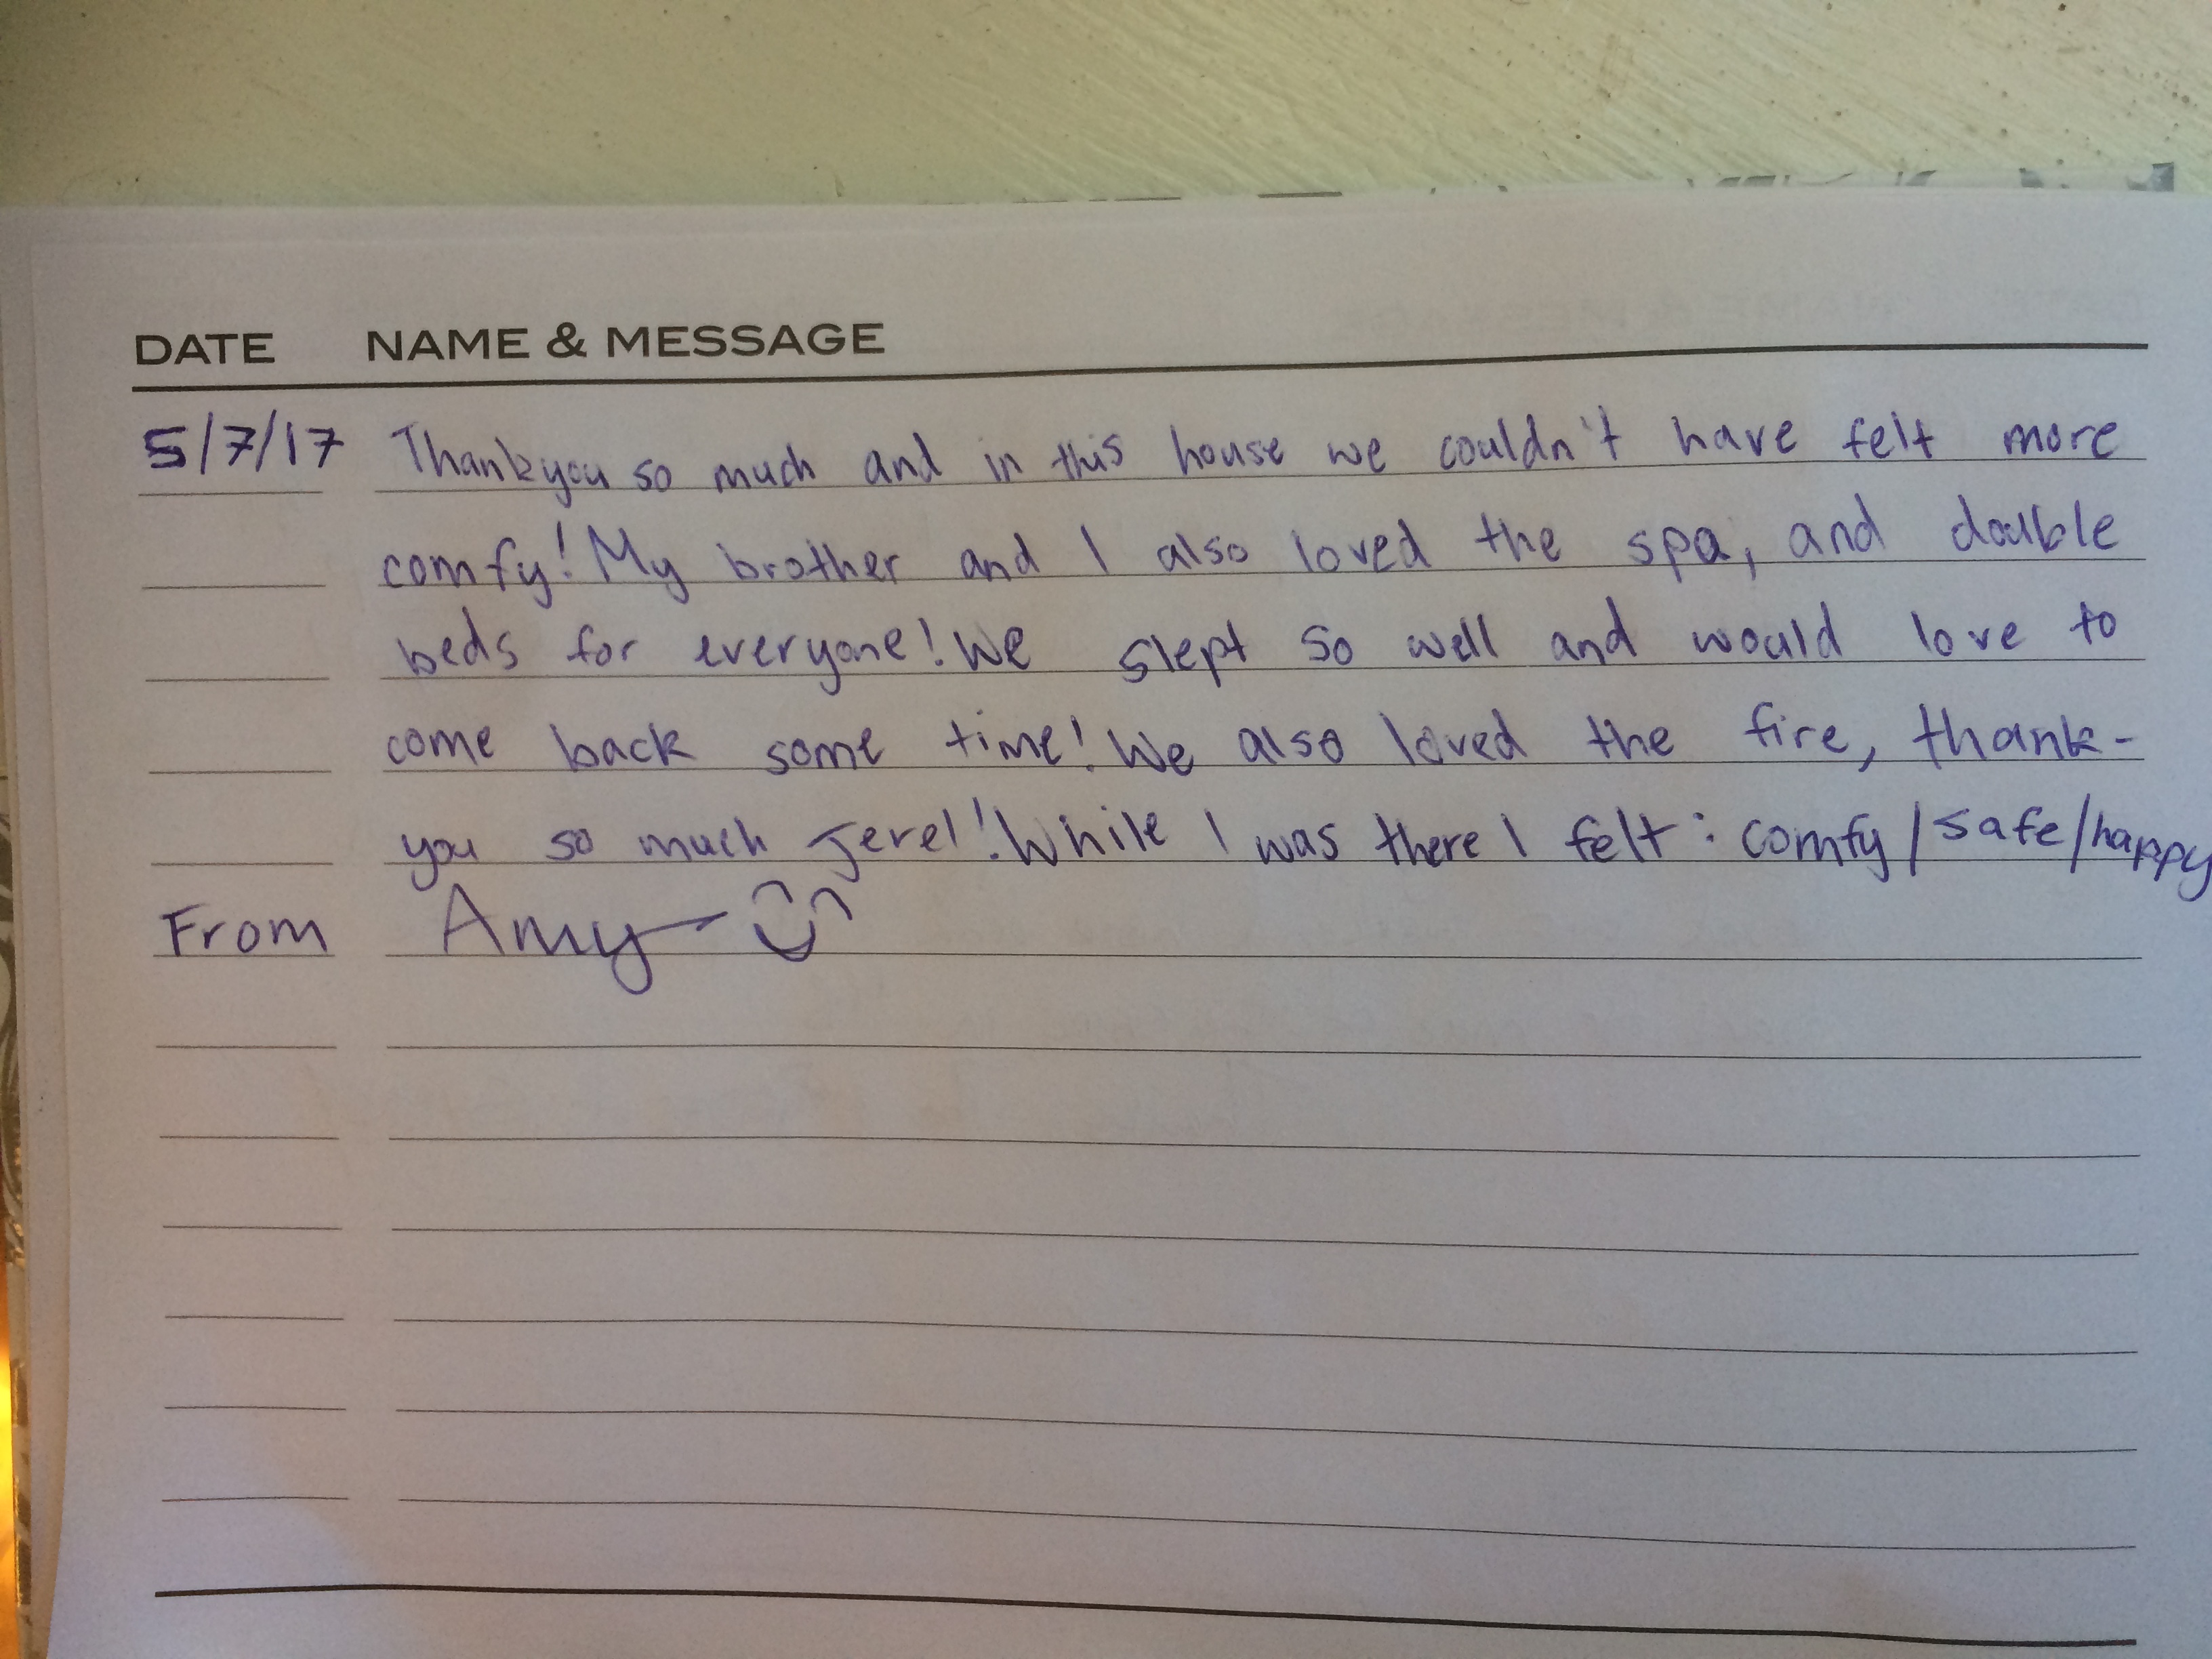 DATE NAME & MESSAGE
5/7/17 Thankyou so much and in this house we couldn't have felt more
comfy! My brother and I also loved the spa, and double
beds for everyone! We slept so well and would love to
come back some time! We also loved the fire, thank-
you so much Jerel! While I was there I felt: comfy/safe/happy
From Amy